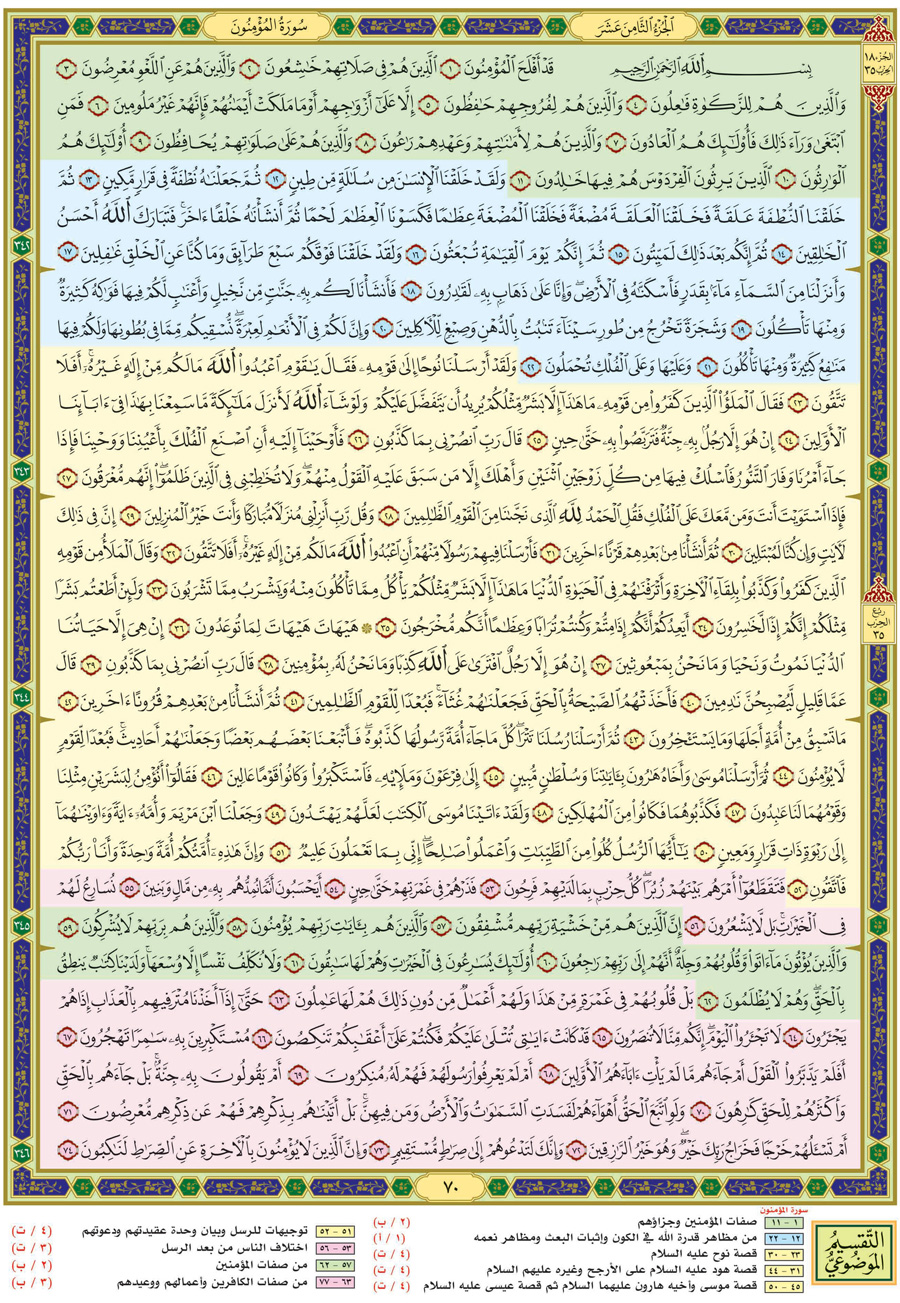 سُورَةُ المُؤْمِنُونَ
الجُزْءُ الثَّامِنَ عَشَرَ
الجُزْءُ ١٨
الحِزْبُ ٣٥
بِسْمِ ٱللَّهِ ٱلرَّحْمَٰنِ ٱلرَّحِيمِ قَدْ أَفْلَحَ ٱلْمُؤْمِنُونَ ١ ٱلَّذِينَ هُمْ فِى صَلَاتِهِمْ خَٰشِعُونَ ٢ وَٱلَّذِينَ هُمْ عَنِ ٱللَّغْوِ مُعْرِضُونَ ٣
وَٱلَّذِينَ هُمْ لِلزَّكَوٰةِ فَٰعِلُونَ ٤ وَٱلَّذِينَ هُمْ لِفُرُوجِهِمْ حَٰفِظُونَ ٥ إِلَّا عَلَىٰٓ أَزْوَٰجِهِمْ أَوْ مَا مَلَكَتْ أَيْمَٰنُهُمْ فَإِنَّهُمْ غَيْرُ مَلُومِينَ ٦ فَمَنِ
ٱبْتَغَىٰ وَرَآءَ ذَٰلِكَ فَأُو۟لَٰٓئِكَ هُمُ ٱلْعَادُونَ ٧ وَٱلَّذِينَ هُمْ لِأَمَٰنَٰتِهِمْ وَعَهْدِهِمْ رَٰعُونَ ٨ وَٱلَّذِينَ هُمْ عَلَىٰ صَلَوَٰتِهِمْ يُحَافِظُونَ ٩ أُو۟لَٰٓئِكَ هُمُ
ٱلْوَٰرِثُونَ ١٠ ٱلَّذِينَ يَرِثُونَ ٱلْفِرْدَوْسَ هُمْ فِيهَا خَٰلِدُونَ ١١ وَلَقَدْ خَلَقْنَا ٱلْإِنسَٰنَ مِن سُلَٰلَةٍ مِّن طِينٍ ١٢ ثُمَّ جَعَلْنَٰهُ نُطْفَةً فِى قَرَارٍ مَّكِينٍ ١٣ ثُمَّ
خَلَقْنَا ٱلنُّطْفَةَ عَلَقَةً فَخَلَقْنَا ٱلْعَلَقَةَ مُضْغَةً فَخَلَقْنَا ٱلْمُضْغَةَ عِظَٰمًا فَكَسَوْنَا ٱلْعِظَٰمَ لَحْمًا ثُمَّ أَنشَأْنَٰهُ خَلْقًا ءَاخَرَ ۚ فَتَبَارَكَ ٱللَّهُ أَحْسَنُ
ٱلْخَٰلِقِينَ ١٤ ثُمَّ إِنَّكُم بَعْدَ ذَٰلِكَ لَمَيِّتُونَ ١٥ ثُمَّ إِنَّكُمْ يَوْمَ ٱلْقِيَٰمَةِ تُبْعَثُونَ ١٦ وَلَقَدْ خَلَقْنَا فَوْقَكُمْ سَبْعَ طَرَآئِقَ وَمَا كُنَّا عَنِ ٱلْخَلْقِ غَٰفِلِينَ ١٧
وَأَنزَلْنَا مِنَ ٱلسَّمَآءِ مَآءًۢ بِقَدَرٍ فَأَسْكَنَّٰهُ فِى ٱلْأَرْضِ ۖ وَإِنَّا عَلَىٰ ذَهَابٍۭ بِهِۦ لَقَٰدِرُونَ ١٨ فَأَنشَأْنَا لَكُم بِهِۦ جَنَّٰتٍ مِّن نَّخِيلٍ وَأَعْنَٰبٍ لَّكُمْ فِيهَا فَوَٰكِهُ كَثِيرَةٌ
وَمِنْهَا تَأْكُلُونَ ١٩ وَشَجَرَةً تَخْرُجُ مِن طُورِ سَيْنَآءَ تَنۢبُتُ بِٱلدُّهْنِ وَصِبْغٍ لِّلْءَاكِلِينَ ٢٠ وَإِنَّ لَكُمْ فِى ٱلْأَنْعَٰمِ لَعِبْرَةً ۖ نُّسْقِيكُم مِّمَّا فِى بُطُونِهَا وَلَكُمْ فِيهَا
مَنَٰفِعُ كَثِيرَةٌ وَمِنْهَا تَأْكُلُونَ ٢١ وَعَلَيْهَا وَعَلَى ٱلْفُلْكِ تُحْمَلُونَ ٢٢ وَلَقَدْ أَرْسَلْنَا نُوحًا إِلَىٰ قَوْمِهِۦ فَقَالَ يَٰقَوْمِ ٱعْبُدُوا۟ ٱللَّهَ مَا لَكُم مِّنْ إِلَٰهٍ غَيْرُهُۥٓ ۖ أَفَلَا
تَتَّقُونَ ٢٣ فَقَالَ ٱلْمَلَؤُا۟ ٱلَّذِينَ كَفَرُوا۟ مِن قَوْمِهِۦ مَا هَٰذَآ إِلَّا بَشَرٌ مِّثْلُكُمْ يُرِيدُ أَن يَتَفَضَّلَ عَلَيْكُمْ وَلَوْ شَآءَ ٱللَّهُ لَأَنزَلَ مَلَٰٓئِكَةً مَّا سَمِعْنَا بِهَٰذَا فِىٓ ءَابَآئِنَا
ٱلْأَوَّلِينَ ٢٤ إِنْ هُوَ إِلَّا رَجُلٌۢ بِهِۦ جِنَّةٌ فَتَرَبَّصُوا۟ بِهِۦ حَتَّىٰ حِينٍ ٢٥ قَالَ رَبِّ ٱنصُرْنِى بِمَا كَذَّبُونِ ٢٦ فَأَوْحَيْنَآ إِلَيْهِ أَنِ ٱصْنَعِ ٱلْفُلْكَ بِأَعْيُنِنَا وَوَحْيِنَا فَإِذَا
جَآءَ أَمْرُنَا وَفَارَ ٱلتَّنُّورُ ۙ فَٱسْلُكْ فِيهَا مِن كُلٍّ زَوْجَيْنِ ٱثْنَيْنِ وَأَهْلَكَ إِلَّا مَن سَبَقَ عَلَيْهِ ٱلْقَوْلُ مِنْهُمْ ۖ وَلَا تُخَٰطِبْنِى فِى ٱلَّذِينَ ظَلَمُوٓا۟ ۖ إِنَّهُم مُّغْرَقُونَ ٢٧
فَإِذَا ٱسْتَوَيْتَ أَنتَ وَمَن مَّعَكَ عَلَى ٱلْفُلْكِ فَقُلِ ٱلْحَمْدُ لِلَّهِ ٱلَّذِى نَجَّىٰنَا مِنَ ٱلْقَوْمِ ٱلظَّٰلِمِينَ ٢٨ وَقُل رَّبِّ أَنزِلْنِى مُنزَلًا مُّبَارَكًا وَأَنتَ خَيْرُ ٱلْمُنزِلِينَ ٢٩ إِنَّ فِى ذَٰلِكَ
لَءَايَٰتٍ وَإِن كُنَّا لَمُبْتَلِينَ ٣٠ ثُمَّ أَنشَأْنَا مِنۢ بَعْدِهِمْ قَرْنًا ءَاخَرِينَ ٣١ فَأَرْسَلْنَا فِيهِمْ رَسُولًا مِّنْهُمْ أَنِ ٱعْبُدُوا۟ ٱللَّهَ مَا لَكُم مِّنْ إِلَٰهٍ غَيْرُهُۥٓ ۖ أَفَلَا تَتَّقُونَ ٣٢ وَقَالَ ٱلْمَلَأُ مِن قَوْمِهِ
ٱلَّذِينَ كَفَرُوا۟ وَكَذَّبُوا۟ بِلِقَآءِ ٱلْءَاخِرَةِ وَأَتْرَفْنَٰهُمْ فِى ٱلْحَيَوٰةِ ٱلدُّنْيَا مَا هَٰذَآ إِلَّا بَشَرٌ مِّثْلُكُمْ يَأْكُلُ مِمَّا تَأْكُلُونَ مِنْهُ وَيَشْرَبُ مِمَّا تَشْرَبُونَ ٣٣ وَلَئِنْ أَطَعْتُم بَشَرًا
مِّثْلَكُمْ إِنَّكُمْ إِذًا لَّخَٰسِرُونَ ٣٤ أَيَعِدُكُمْ أَنَّكُمْ إِذَا مِتُّمْ وَكُنتُمْ تُرَابًا وَعِظَٰمًا أَنَّكُم مُّخْرَجُونَ ٣٥ ۞ هَيْهَاتَ هَيْهَاتَ لِمَا تُوعَدُونَ ٣٦ إِنْ هِىَ إِلَّا حَيَاتُنَا
ٱلدُّنْيَا نَمُوتُ وَنَحْيَا وَمَا نَحْنُ بِمَبْعُوثِينَ ٣٧ إِنْ هُوَ إِلَّا رَجُلٌ ٱفْتَرَىٰ عَلَى ٱللَّهِ كَذِبًا وَمَا نَحْنُ لَهُۥ بِمُؤْمِنِينَ ٣٨ قَالَ رَبِّ ٱنصُرْنِى بِمَا كَذَّبُونِ ٣٩ قَالَ
عَمَّا قَلِيلٍ لَّيُصْبِحُنَّ نَٰدِمِينَ ٤٠ فَأَخَذَتْهُمُ ٱلصَّيْحَةُ بِٱلْحَقِّ فَجَعَلْنَٰهُمْ غُثَآءً ۚ فَبُعْدًا لِّلْقَوْمِ ٱلظَّٰلِمِينَ ٤١ ثُمَّ أَنشَأْنَا مِنۢ بَعْدِهِمْ قُرُونًا ءَاخَرِينَ ٤٢
مَا تَسْبِقُ مِنْ أُمَّةٍ أَجَلَهَا وَمَا يَسْتَـْٔخِرُونَ ٤٣ ثُمَّ أَرْسَلْنَا رُسُلَنَا تَتْرَا ۖ كُلَّ مَا جَآءَ أُمَّةً رَّسُولُهَا كَذَّبُوهُ ۚ فَأَتْبَعْنَا بَعْضَهُم بَعْضًا وَجَعَلْنَٰهُمْ أَحَادِيثَ ۚ فَبُعْدًا لِّقَوْمٍ
لَّا يُؤْمِنُونَ ٤٤ ثُمَّ أَرْسَلْنَا مُوسَىٰ وَأَخَاهُ هَٰرُونَ بِـَٔايَٰتِنَا وَسُلْطَٰنٍ مُّبِينٍ ٤٥ إِلَىٰ فِرْعَوْنَ وَمَلَإِي۟هِۦ فَٱسْتَكْبَرُوا۟ وَكَانُوا۟ قَوْمًا عَالِينَ ٤٦ فَقَالُوٓا۟ أَنُؤْمِنُ لِبَشَرَيْنِ مِثْلِنَا
وَقَوْمُهُمَا لَنَا عَٰبِدُونَ ٤٧ فَكَذَّبُوهُمَا فَكَانُوا۟ مِنَ ٱلْمُهْلَكِينَ ٤٨ وَلَقَدْ ءَاتَيْنَا مُوسَى ٱلْكِتَٰبَ لَعَلَّهُمْ يَهْتَدُونَ ٤٩ وَجَعَلْنَا ٱبْنَ مَرْيَمَ وَأُمَّهُۥٓ ءَايَةً وَءَاوَيْنَٰهُمَآ
إِلَىٰ رَبْوَةٍ ذَاتِ قَرَارٍ وَمَعِينٍ ٥٠ يَٰٓأَيُّهَا ٱلرُّسُلُ كُلُوا۟ مِنَ ٱلطَّيِّبَٰتِ وَٱعْمَلُوا۟ صَٰلِحًا ۖ إِنِّى بِمَا تَعْمَلُونَ عَلِيمٌ ٥١ وَإِنَّ هَٰذِهِۦٓ أُمَّتُكُمْ أُمَّةً وَٰحِدَةً وَأَنَا۠ رَبُّكُمْ
فَٱتَّقُونِ ٥٢ فَتَقَطَّعُوٓا۟ أَمْرَهُم بَيْنَهُمْ زُبُرًا ۖ كُلُّ حِزْبٍۭ بِمَا لَدَيْهِمْ فَرِحُونَ ٥٣ فَذَرْهُمْ فِى غَمْرَتِهِمْ حَتَّىٰ حِينٍ ٥٤ أَيَحْسَبُونَ أَنَّمَا نُمِدُّهُم بِهِۦ مِن مَّالٍ وَبَنِينَ ٥٥ نُسَارِعُ لَهُمْ
فِى ٱلْخَيْرَٰتِ ۚ بَل لَّا يَشْعُرُونَ ٥٦ إِنَّ ٱلَّذِينَ هُم مِّنْ خَشْيَةِ رَبِّهِم مُّشْفِقُونَ ٥٧ وَٱلَّذِينَ هُم بِـَٔايَٰتِ رَبِّهِمْ يُؤْمِنُونَ ٥٨ وَٱلَّذِينَ هُم بِرَبِّهِمْ لَا يُشْرِكُونَ ٥٩
وَٱلَّذِينَ يُؤْتُونَ مَآ ءَاتَوا۟ وَّقُلُوبُهُمْ وَجِلَةٌ أَنَّهُمْ إِلَىٰ رَبِّهِمْ رَٰجِعُونَ ٦٠ أُو۟لَٰٓئِكَ يُسَٰرِعُونَ فِى ٱلْخَيْرَٰتِ وَهُمْ لَهَا سَٰبِقُونَ ٦١ وَلَا نُكَلِّفُ نَفْسًا إِلَّا وُسْعَهَا ۖ وَلَدَيْنَا كِتَٰبٌ يَنطِقُ
بِٱلْحَقِّ ۚ وَهُمْ لَا يُظْلَمُونَ ٦٢ بَلْ قُلُوبُهُمْ فِى غَمْرَةٍ مِّنْ هَٰذَا وَلَهُمْ أَعْمَٰلٌ مِّن دُونِ ذَٰلِكَ هُمْ لَهَا عَٰمِلُونَ ٦٣ حَتَّىٰٓ إِذَآ أَخَذْنَا مُتْرَفِيهِم بِٱلْعَذَابِ إِذَا هُمْ
يَجْـَٔرُونَ ٦٤ لَا تَجْـَٔرُوا۟ ٱلْيَوْمَ ۖ إِنَّكُم مِّنَّا لَا تُنصَرُونَ ٦٥ قَدْ كَانَتْ ءَايَٰتِى تُتْلَىٰ عَلَيْكُمْ فَكُنتُمْ عَلَىٰٓ أَعْقَٰبِكُمْ تَنكِصُونَ ٦٦ مُسْتَكْبِرِينَ بِهِۦ سَٰمِرًا تَهْجُرُونَ ٦٧
أَفَلَمْ يَدَّبَّرُوا۟ ٱلْقَوْلَ أَمْ جَآءَهُم مَّا لَمْ يَأْتِ ءَابَآءَهُمُ ٱلْأَوَّلِينَ ٦٨ أَمْ لَمْ يَعْرِفُوا۟ رَسُولَهُمْ فَهُمْ لَهُۥ مُنكِرُونَ ٦٩ أَمْ يَقُولُونَ بِهِۦ جِنَّةٌۢ ۚ بَلْ جَآءَهُم بِٱلْحَقِّ
وَأَكْثَرُهُمْ لِلْحَقِّ كَٰرِهُونَ ٧٠ وَلَوِ ٱتَّبَعَ ٱلْحَقُّ أَهْوَآءَهُمْ لَفَسَدَتِ ٱلسَّمَٰوَٰتُ وَٱلْأَرْضُ وَمَن فِيهِنَّ ۚ بَلْ أَتَيْنَٰهُم بِذِكْرِهِمْ فَهُمْ عَن ذِكْرِهِم مُّعْرِضُونَ ٧١
أَمْ تَسْـَٔلُهُمْ خَرْجًا فَخَرَاجُ رَبِّكَ خَيْرٌ ۖ وَهُوَ خَيْرُ ٱلرَّٰزِقِينَ ٧٢ وَإِنَّكَ لَتَدْعُوهُمْ إِلَىٰ صِرَٰطٍ مُّسْتَقِيمٍ ٧٣ وَإِنَّ ٱلَّذِينَ لَا يُؤْمِنُونَ بِٱلْءَاخِرَةِ عَنِ ٱلصِّرَٰطِ لَنَٰكِبُونَ ٧٤
رُبْعُ
الحِزْبِ
٣٥
٣٤٢
٣٤٣
٣٤٤
٣٤٥
٣٤٦
٧٠
التَّقْسِيمُ
المَوْضُوعِيُّ
سورة المؤمنون
١ - ١١ صفات المؤمنين وجزاؤهم (٢ / ب)
١٢ - ٢٢ من مظاهر قدرة الله في الكون وإثبات البعث ومظاهر نعمه (١ / أ)
٢٣ - ٣٠ قصة نوح عليه السلام (٤ / ت)
٣١ - ٤٤ قصة هود عليه السلام على الأرجح وغيره عليهم السلام (٤ / ت)
٤٥ - ٥٠ قصة موسى وأخيه هارون عليهما السلام ثم قصة عيسى عليه السلام (٤ / ت)
٥١ - ٥٢ توجيهات للرسل وبيان وحدة عقيدتهم ودعوتهم (٤ / ت)
٥٣ - ٥٦ اختلاف الناس من بعد الرسل (٣ / ت)
٥٧ - ٦٢ من صفات المؤمنين (٢ / ب)
٦٣ - ٧٧ من صفات الكافرين وأعمالهم ووعيدهم (٣ / ب)